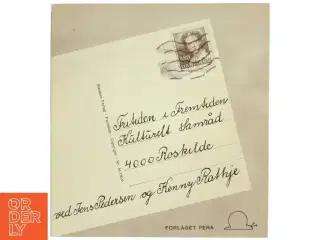 Fritiden i Fremtiden
Kulturelt Samråd
4000 Roskilde
ved Jens Pedersen og Henny Rathje
FORLAGET PERA
OR
DER
LY